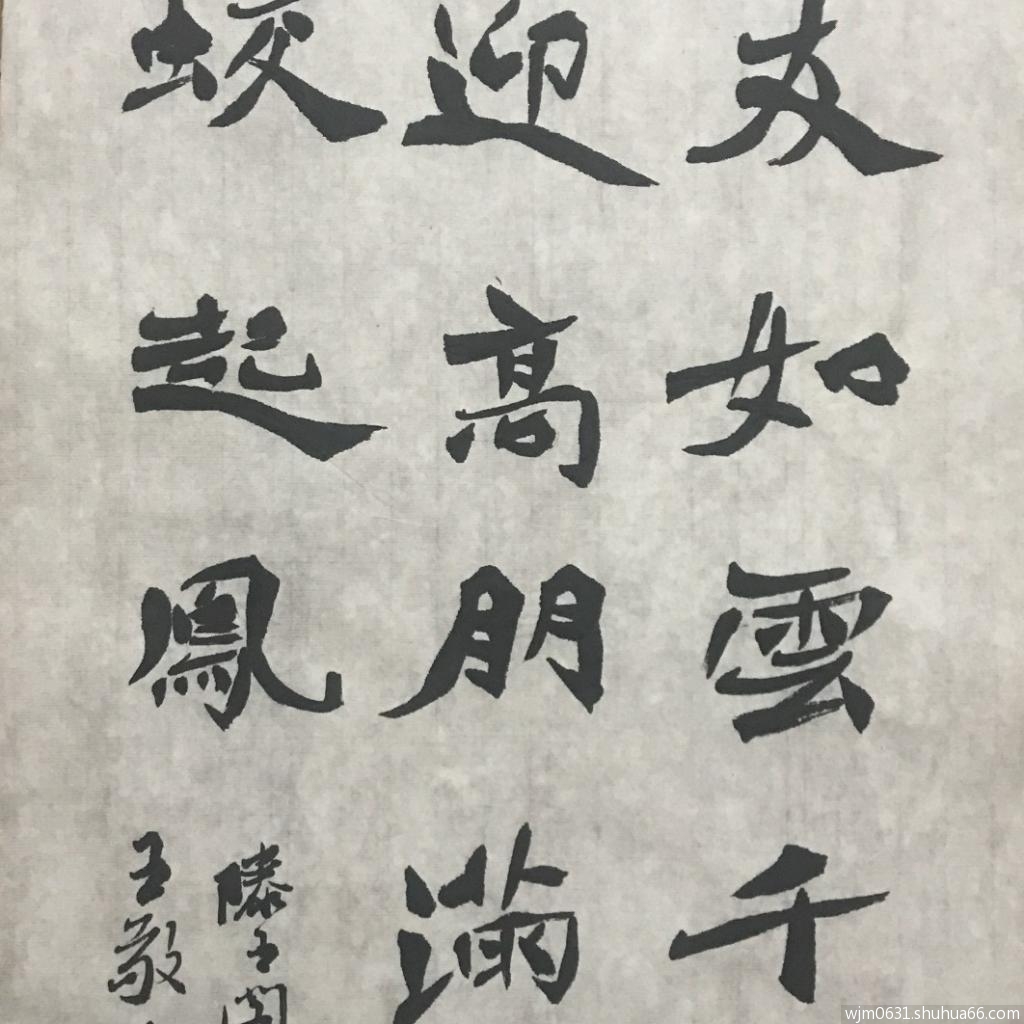 友如雲千
迎高朋滿
蛟起鳳
滕王閣
王敬
wjm0631.shuhua66.com